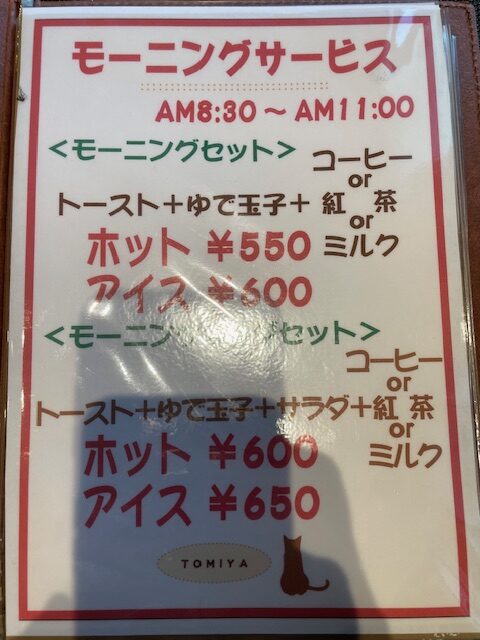 モーニングサービス
AM8:30 ~ AM11:00
<モーニングセット>
コーヒー
or
トースト+ゆで玉子+ 紅 茶
or
ホット ¥550 ミルク
アイス ¥600
<モーニン セット>
コーヒー
or
トースト+ゆで玉子+サラダ+紅 茶
or
ホット ¥600 ミルク
アイス ¥650
TOMIYA